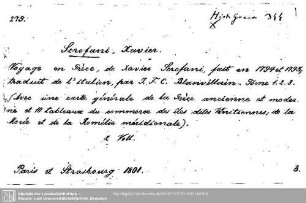 273.
Scrofani, Xavier.
Voyage en Grèce, de Xavier Scrofani, fait en 1794 et 1795,
traduit de l'italien, par J. F. C. Blanvillain. Tome 1.2.3.
(Avec une carte générale de la Grèce ancienne et moder
nie et 10 tableaux du commerce des îles dites Vénitiennes, de la
Morée et de la Romélie méridionale).
2 Voll.
Paris et Strasbourg 1801.
8.